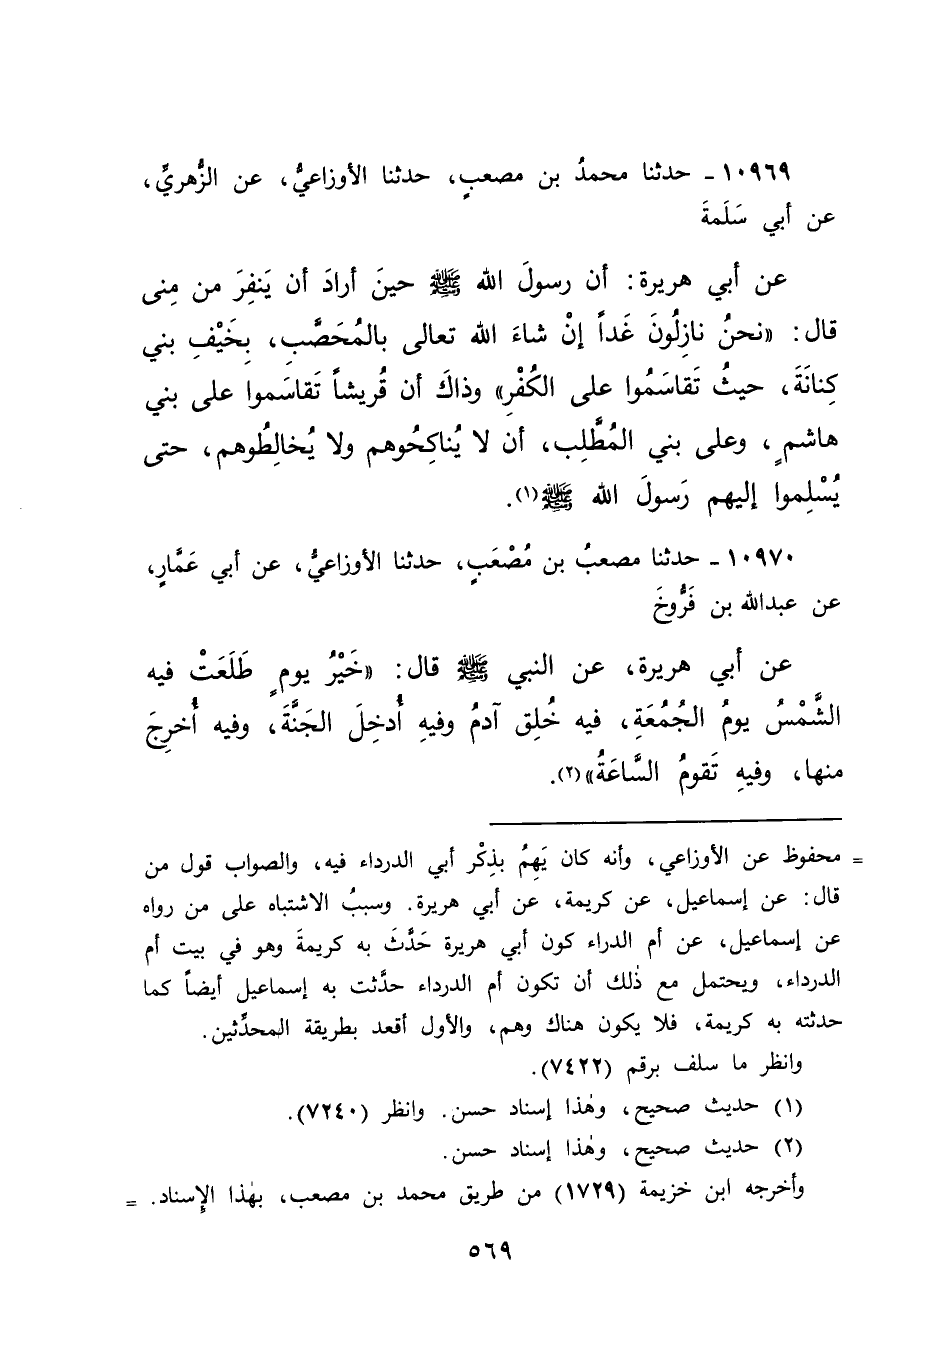 ١٠٩٦٩ ـ حدثنا محمدُ بن مصعبٍ، حدثنا الأوزاعيُّ، عن الزُّهريِّ،
عن أبي سَلَمةَ
عن أبي هريرة: أن رسولَ الله ﷺ حينَ أرادَ أن يَنفِرَ من مِنى
قال: «نحنُ نازِلُونَ غَداً إنْ شاءَ الله تعالى بالمُحَصَّبِ، بِخَيْفِ بني
كِنانَةَ، حيثُ تَقاسَمُوا على الكُفْرِ» وذاكَ أن قُريشاً تَقاسَموا على بني
هاشمٍ، وعلى بني المُطَّلِب، أن لا يُناكِحُوهم ولا يُخالِطُوهم، حتى
يُسْلِموا إليهم رَسولَ الله ﷺ(١).
١٠٩٧٠ ـ حدثنا مصعبُ بن مُصْعَبٍ، حدثنا الأوزاعيُّ، عن أبي عَمَّارٍ،
عن عبدالله بن فَرُّوخَ
عن أبي هريرة، عن النبي ﷺ قال: «خَيْرُ يومٍ طَلَعَتْ فيه
الشَّمْسُ يومُ الجُمُعَةِ، فيه خُلِق آدمُ وفيهِ أُدخِلَ الجَنَّةَ، وفيه أُخرِجَ
منها، وفيهِ تَقومُ السَّاعَةُ»(٢).
= محفوظ عن الأوزاعي، وأنه كان يَهِمُ بذِكْر أبي الدرداء فيه، والصواب قول من
قال: عن إسماعيل، عن كريمة، عن أبي هريرة. وسببُ الاشتباه على من رواه
عن إسماعيل، عن أم الدراء كون أبي هريرة حَدَّثَ به كريمةَ وهو في بيت أم
الدرداء، ويحتمل مع ذٰلك أن تكون أم الدرداء حدَّثت به إسماعيل أيضاً كما
حدثته به كريمة، فلا يكون هناك وهم، والأول أقعد بطريقة المحدِّثين.
وانظر ما سلف برقم (٧٤٢٢).
(١) حديث صحيح، وهٰذا إسناد حسن. وانظر (٧٢٤٠).
(٢) حديث صحيح، وهٰذا إسناد حسن.
وأخرجه ابن خزيمة (١٧٢٩) من طريق محمد بن مصعب، بهٰذا الإسناد. =
٥٦٩